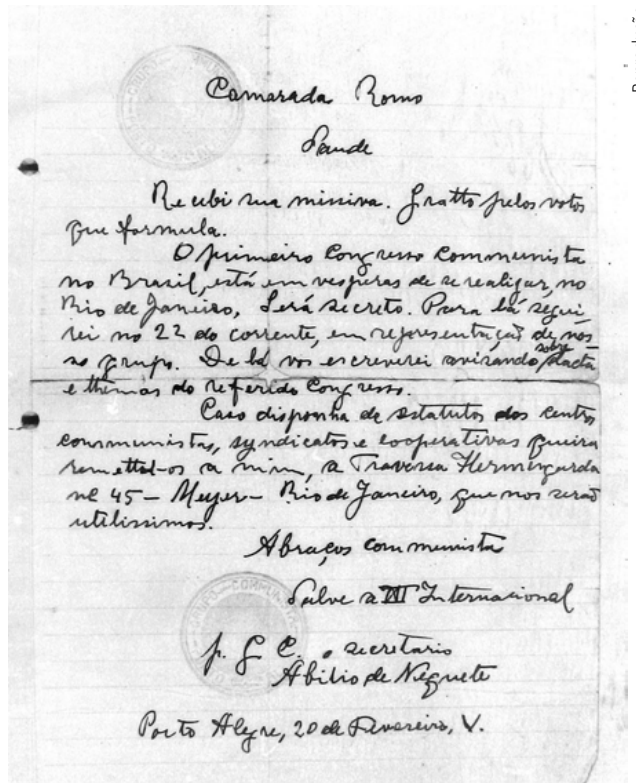 Camarada Romo
Saude
Recebi sua missiva. Gratto pelos votos
que formula.
O primeiro Congresso Communista
no Brasil, está em vesperas de se realizar, no
Rio de Janeiro, Será secreto. Para lá segui-
rei no 22 do corrente, em representação de nós-
so grupo. De lá vos escreverei avisando sobre dacta
e themas do referido Congresso.
Caso disponha de estatutos dos centros
communistas, syndicatos e cooperativas queira
remettel-os a mim, a Travessa Hermengarda
nº 45 - Meyer - Rio de Janeiro, que nos serão
utilissimos.
Abraços communista
Salve a III Internacional
p. G C. o secretario
Abilio de Nequete
Porto Alegre, 20 de Fevereiro, V.
GRUPO COMMUNISTA